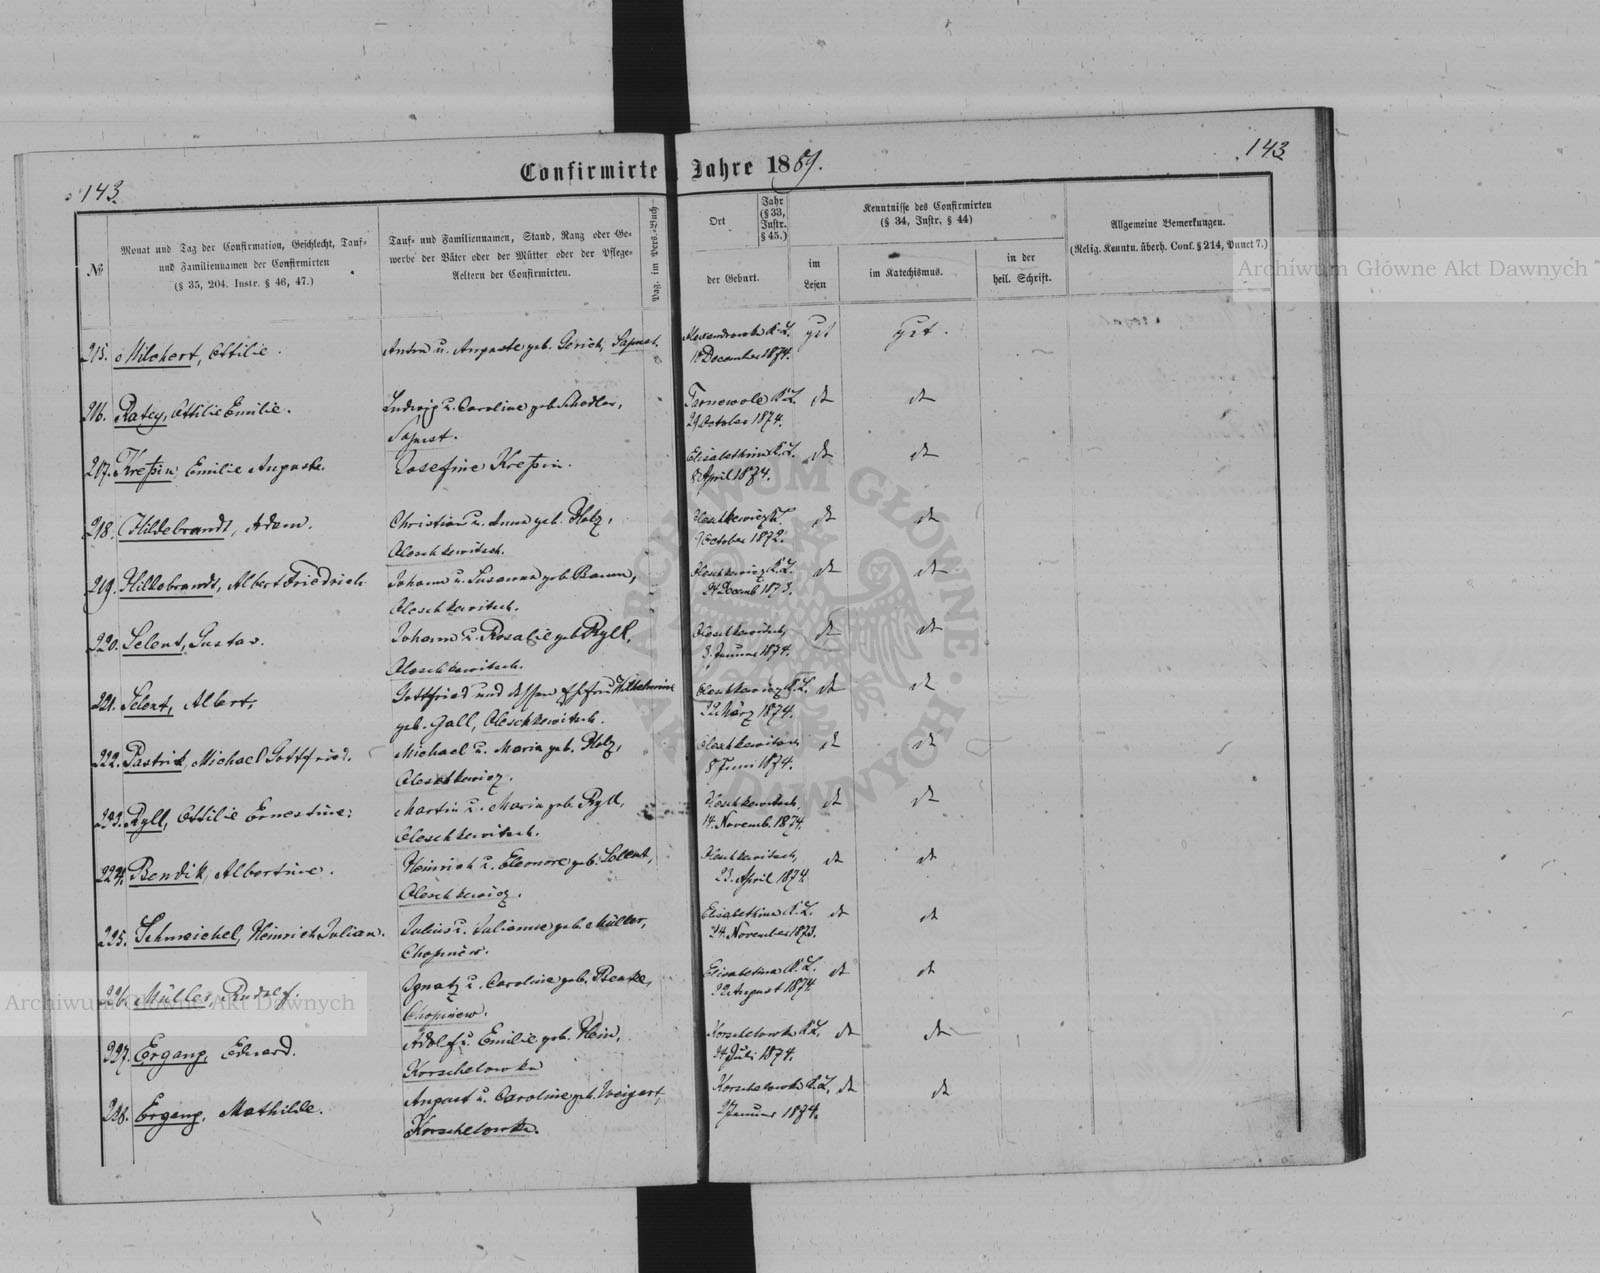 143
Confirmirte
Jahre 1889.
143
№
Monat und Tag der Confirmation, Geschlecht, Tauf-
und Familiennamen der Confirmirten
(§ 35, 204. Instr. § 46, 47.)
Tauf- und Familiennamen, Stand, Rang oder Ge-
werbe der Väter oder der Mütter oder der Pflege-
Aeltern der Confirmirten.
Pag. im Pers.-Buch
Ort
Jahr
(§ 33,
Instr.
§ 45.)
der Geburt.
Kenntnisse des Confirmirten
(§ 34, Instr. § 44)
im
Lesen
im Katechismus.
in der
heil. Schrift.
Allgemeine Bemerkungen.
(Relig. Kenntn. überh. Conf. § 214, Punct 7.)
Archiwum Główne Akt Dawnych
215. Milchert, Ottilie.
Andr. u. Auguste geb. Gerich, Sapust.
K. L.
10 December 1874.
gut
gut.
216. Ratey, Ottilie Emilie.
Ludwig u. Caroline geb. Schedler,
Sapust.
Tarnowole K. L.
29 October 1874.
dt
dt
217. Kreßin, Emilie Auguste.
Josefine Kreßin.
Elisabethin K. L.
8 April 1874.
dt
dt
218. Hildebrandt, Adam.
Christian u. Anna geb. Holz,
Oleschkewitsch.
Oleschkewicz K. L.
9 October 1872.
dt
dt
219. Hildebrandt, Albert Friedrich
Johann u. Susanna geb. Baum,
Oleschkewitsch.
Oleschkewicz K. L.
24 Decemb. 1873.
dt
dt
220. Selent, Gustav.
Johann u. Rosalie geb. Ryll,
Oleschkewitsch.
Oleschkewitsch,
3. Januar 1874.
dt
dt
221. Selent, Albert,
Gottfried und dessen Ehefrau Wilhelmine
geb. Gall, Oleschkewitsch.
Oleschkewicz K. L.
22 März 1874.
dt
dt
222. Pastrik, Michael Gottfried.
Michael u. Maria geb. Holz,
Oleschkewicz.
Oleschkewitsch
8 Juni 1874.
dt
dt
223. Ryll, Ottilie Ernestine.
Martin u. Maria geb. Ryll,
Oleschkewitsch.
Oleschkewitsch,
14. Novemb. 1874.
dt
dt
224. Bendik, Albertine.
Heinrich u. Eleonore geb. Selent,
Oleschkewicz.
Oleschkewitsch,
23. April 1874
dt
dt
225. Schmeichel, Heinrich Julian.
Julius u. Julianne geb. Müller,
Chopniew.
Elisabethin K. L.
24. November 1873.
dt
dt
226. Müller, Rudolf.
Ignatz u. Caroline geb.
Chopniew.
K. L.
22 August 1874.
dt
dt
Archiwum Główne Akt Dawnych
227. Ergang, Eduard.
Adolf u. Emilie geb. Hein,
Korschelowka
Korschelowka K. L.
24 Juli 1874.
dt
dt
228. Ergang, Mathilde.
August u. Caroline geb. Weigert,
Korschelowka.
Korschelowka K. L.
Januar 1874.
dt
dt
ARCHIWUM GŁÓWNE
AKT DAWNYCH